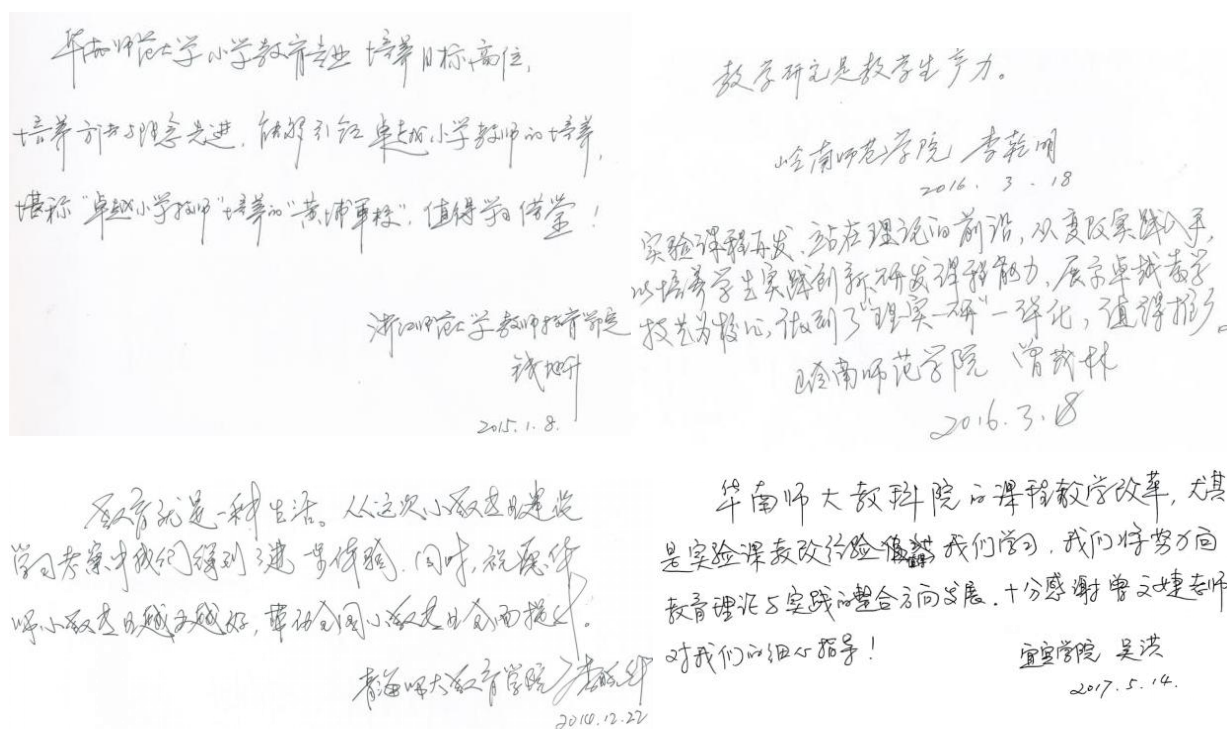 华南师范大学小学教育专业培养目标高位，
培养方法与理念先进，能够引领卓越小学教师的培养，
堪称“卓越小学教师”培养的“黄埔军校”，值得学习借鉴！
浙江师范大学教师教育学院
钱旭升
2015.1.8.
教学研究是教学生产力。
岭南师范学院 李乾明
2016.3.18
实验课程开发，站在理论的前沿，从变改实践入手，
以培养学生实践创新、研发课程能力、展示卓越教学
技艺为核心，做到了“理—实—研”一体化，值得推广。
岭南师范学院 曾茂林
2016.3.18
教育就是一种生活。从这次小教专业建设
学习考察中我们得到了进一步体验。同时，祝愿华
师小教专业越办越好，带动全国小教专业全面提升。
青海师大教育学院
2014.12.22
华南师大教科院的课程教学改革，尤其
是实验课教改经验值得我们学习，我们将努力向
教育理论与实践的整合方向发展。十分感谢曾文婕老师
对我们的细心指导！
宜宾学院 吴洪
2017.5.14.